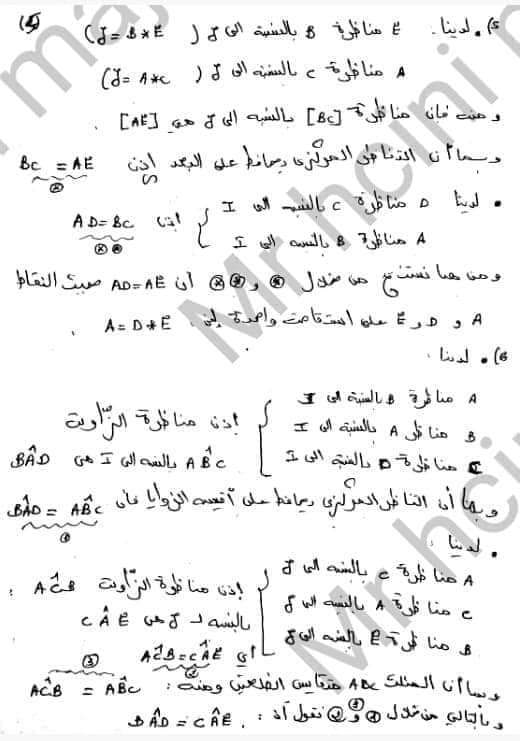 5) • لدينا : E مناظرة B بالنسبة الى J ( J = B * E )
A مناظرة C بالنسبة الى J ( J = A * C )
ومنه فإن مناظرة [BC] بالنسبة الى J هي [AE] .
وبما أن التناظر المركزي يحافظ على البعد إذن BC = AE
⊗
• لدينا D مناظرة C بالنسبة الى I
A مناظرة B بالنسبة الى I
إذن AD = BC
⊗⊗
ومن هنا نستنتج من خلال ⊗ و ⊗⊗ أن AD = AE حيث النقاط
A و D و E على استقامة واحدة إذن A = D * E .
6) • لدينا :
A مناظرة B بالنسبة الى I
B مناظرة A بالنسبة الى I
C مناظرة D بالنسبة الى I
إذن مناظرة الزاوية
ABC بالنسبة الى I هي BAD
وبما أن التناظر المركزي يحافظ على أقيسة الزوايا فإن BAD = ABC
①
• لدينا :
A مناظرة C بالنسبة الى J
C مناظرة A بالنسبة الى J
B مناظرة E بالنسبة الى J
إذن مناظرة الزاوية ACB
بالنسبة لـ J هي CAE
أي ACB = CAE
②
وبما أن المثلث ABC متقايس الضلعين ومنه : ACB = ABC
③
وبالتالي من خلال ① و ② و ③ نقول أن : BAD = CAE .
Mr hcini